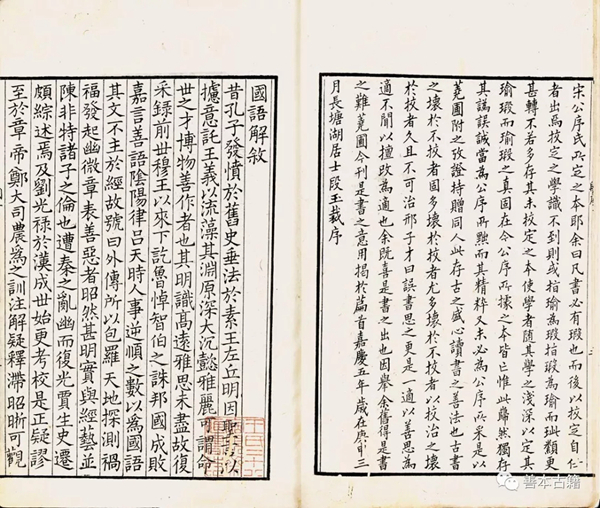 宋公序氏所定之本耶余曰凡書必有瑕也而後以校定自任
者出焉校定之學識不到則或指瑜為瑕指瑕為瑜而玼纇更
甚轉不若多存其未校定之本使學者隨其學之淺深以定其
瑜瑕而瑜瑕之真固在今公序所據之本皆亡惟此巋然獨存
其譌誤誠當為公序所黜而其精粹又未必為公序所采是以
蕘圃附之攷證持贈同人此存古之盛心讀書之善法也古書
之壞於不挍者固多壞於挍者尤多壞於不挍者以挍治之壞
於挍者久且不可治邢子才曰誤書思之更是一適以善思為
適不聞以擅改為適也余既喜是書之出也因舉余舊得是書
之難蕘圃今刊是書之意用揭於篇首嘉慶五年歲在庚申三
月長塘湖居士段玉裁序
國語解敘
昔孔子發憤於舊史垂法於素王左丘明因聖言以
攄意託王義以流藻其淵原深大沉懿雅麗可謂命
世之才博物善作者也其明識高遠雅思未盡故復
采錄前世穆王以來下訖魯悼智伯之誅邦國成敗
嘉言善語陰陽律呂天時人事逆順之數以為國語
其文不主於經故號曰外傳所以包羅天地探測禍
福發起幽微章表善惡者昭然甚明實與經藝並
陳非特諸子之倫也遭秦之亂幽而復光賈生史遷
頗綜述焉及劉光祿於漢成世始更考校是正疑謬
至於章帝鄭大司農為之訓注解疑釋滯昭晰可觀
善本古籍